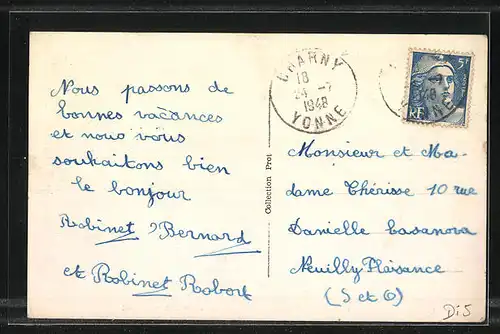 Nous passons de
bonnes vacances
et nous vous
souhaitons bien
le bonjour
Robinet Bernard
et Robinet Robert
Collection Prot
CHARNY
18
24 -7
1948
YONNE
5F
RF
Monsieur et Ma-
dame Thérisse 10 rue
Danielle Casanova
Neuilly Plaisance
(S et O)
Di5